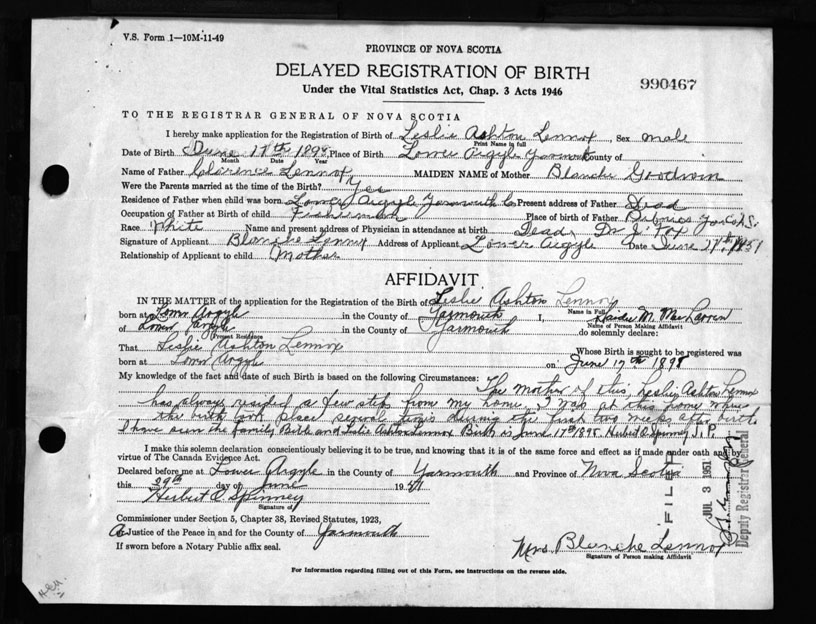 V.S. Form 1—10M-11-49
PROVINCE OF NOVA SCOTIA
DELAYED REGISTRATION OF BIRTH
990467
Under the Vital Statistics Act, Chap. 3 Acts 1946
TO THE REGISTRAR GENERAL OF NOVA SCOTIA
I hereby make application for the Registration of Birth of Leslie Ashton Lennox, Sex male
Print Name in full
Date of Birth June 17th 1898 Place of Birth Lower Argyle Yarmouth County of
Month Date Year
Name of Father Clarence Lennox MAIDEN NAME of Mother Blanche Goodwin
Were the Parents married at the time of the Birth? Yes
Residence of Father when child was born Lower Argyle Yarmouth Co Present address of Father Dead
Occupation of Father at Birth of child Fisherman Place of birth of Father
Race White Name and present address of Physician in attendance at birth Dead Dr J. Fox
Signature of Applicant Blanche Lennox Address of Applicant Lower Argyle Date June 1951
Relationship of Applicant to child Mother
AFFIDAVIT
IN THE MATTER of the application for the Registration of the Birth of Leslie Ashton Lennox
Name in Full
born at Lower Argyle in the County of Yarmouth I, M. MacLaren
Name of Person Making Affidavit
of Lower Argyle in the County of Yarmouth do solemnly declare:
Present Residence
That Leslie Ashton Lennox Whose Birth is sought to be registered was
born at Lower Argyle on June 17th 1898
My knowledge of the fact and date of such Birth is based on the following Circumstances: The Mother of this, Leslie Ashton Lennox
has always resided a few steps from my home. I was at this home where
the birth took place several times during the first two weeks after birth.
I have seen the family Bible and Leslie Ashton Lennox Birth is June 17th 1898. Herbert O. Spinney J. P.
I make this solemn declaration conscientiously believing it to be true, and knowing that it is of the same force and effect as if made under oath and by
virtue of The Canada Evidence Act.
Declared before me at Lower Argyle in the County of Yarmouth and Province of Nova Scotia
this 29th day of June 1951
Herbert O Spinney
Signature of
Commissioner under Section 5, Chapter 38, Revised Statutes, 1923,
A Justice of the Peace in and for the County of Yarmouth
If sworn before a Notary Public affix seal.
Mrs Blanche Lennox
Signature of Person making Affidavit
FILED
JUL 3 1951
Deputy Registrar General
For information regarding filling out of this Form, see instructions on the reverse side.